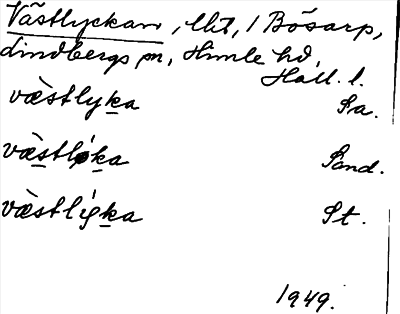 Västlyckan, lht, 1 Bösarp,
Lindbergs sn, Himle hd,
Hall. l.
væ̀stlyka Sa.
væ̀stlø̀ka Sand.
væ̀stlýka St.
1949.